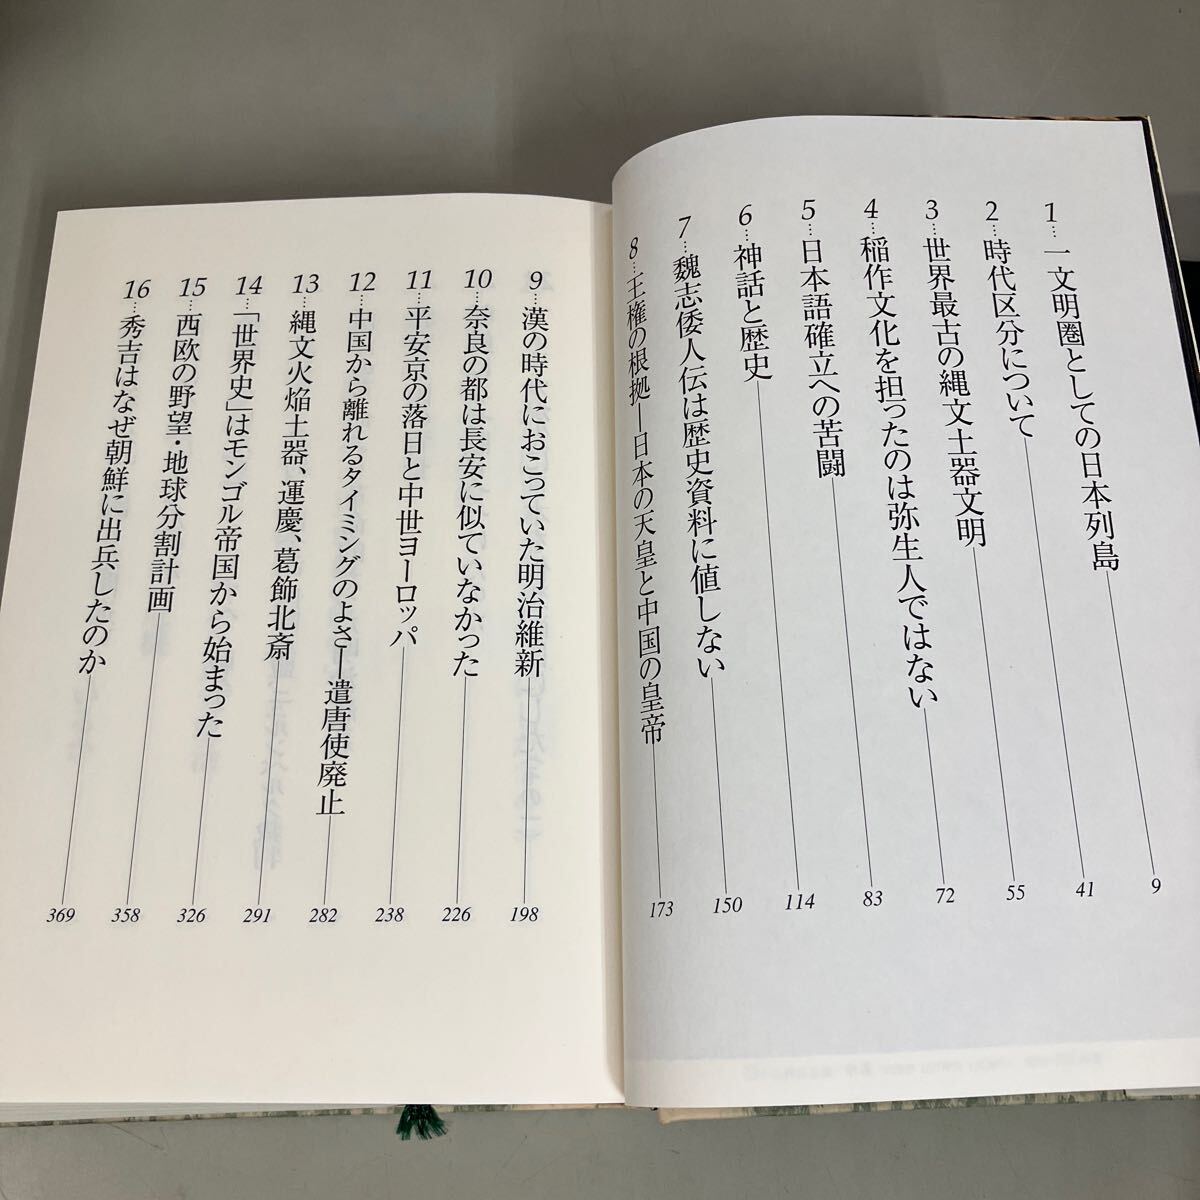 1…一文明圏としての日本列島 9
2…時代区分について 41
3…世界最古の縄文土器文明 55
4…稲作文化を担ったのは弥生人ではない 72
5…日本語確立への苦闘 83
6…神話と歴史 114
7…魏志倭人伝は歴史資料に値しない 150
8…王権の根拠―日本の天皇と中国の皇帝 173
9…漢の時代におこっていた明治維新 198
10…奈良の都は長安に似ていなかった 226
11…平安京の落日と中世ヨーロッパ 238
12…中国から離れるタイミングのよさ―遣唐使廃止 282
13…縄文火焔土器、運慶、葛飾北斎 291
14…「世界史」はモンゴル帝国から始まった 326
15…西欧の野望・地球分割計画 358
16…秀吉はなぜ朝鮮に出兵したのか 369